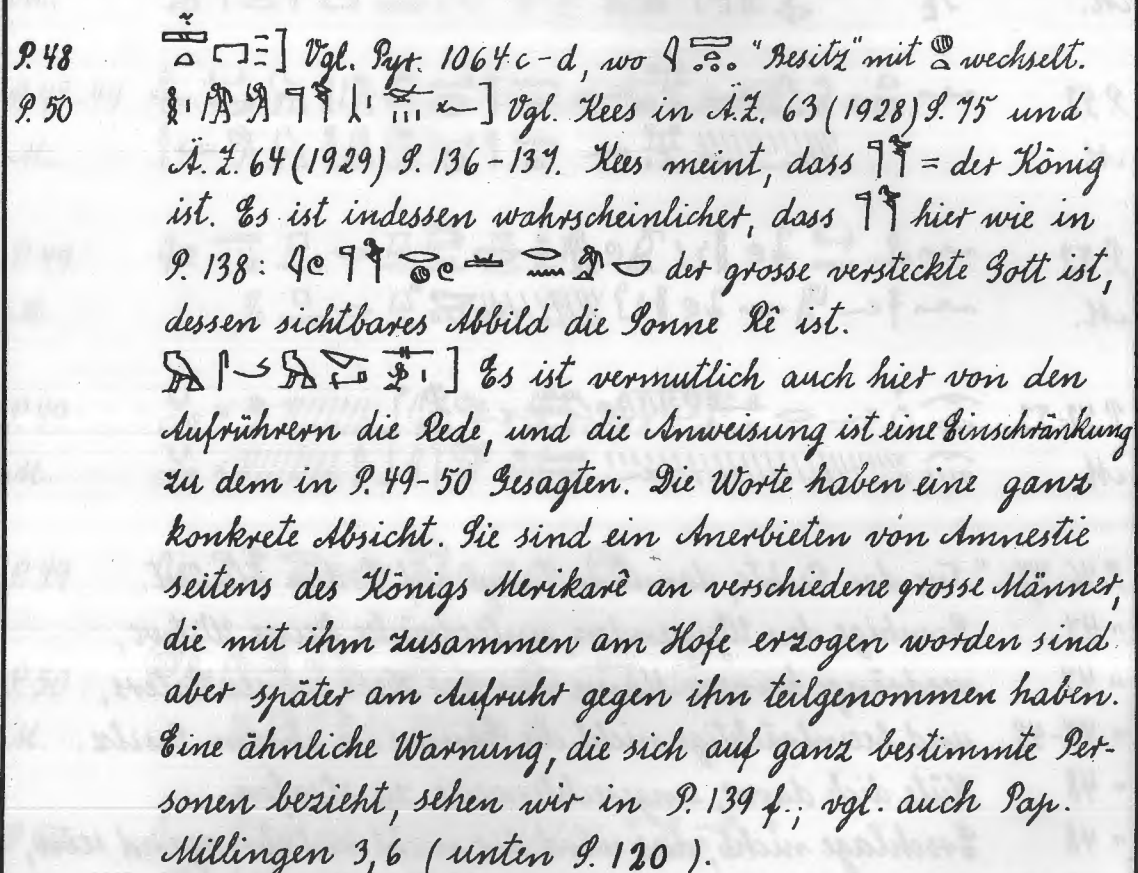 P. 48 ] Vgl. Pyr. 1064 c-d, wo "Besitz" mit wechselt.
P. 50 ] Vgl. Kees in Ä.Z. 63 (1928) S. 75 und
Ä. Z. 64 (1929) S. 136-137. Kees meint, dass = der König
ist. Es ist indessen wahrscheinlicher, dass hier wie in
P. 138: der grosse versteckte Gott ist,
dessen sichtbares Abbild die Sonne Rê ist.
] Es ist vermutlich auch hier von den
Aufrührern die Rede, und die Anweisung ist eine Einschränkung
zu dem in P. 49-50 Gesagten. Die Worte haben eine ganz
konkrete Absicht. Sie sind ein Anerbieten von Amnestie
seitens des Königs Merikarê an verschiedene grosse Männer,
die mit ihm zusammen am Hofe erzogen worden sind
aber später am Aufruhr gegen ihn teilgenommen haben.
Eine ähnliche Warnung, die sich auf ganz bestimmte Per-
sonen bezieht, sehen wir in P. 139 f.; vgl. auch Pap.
Millingen 3,6 (unten S. 120).